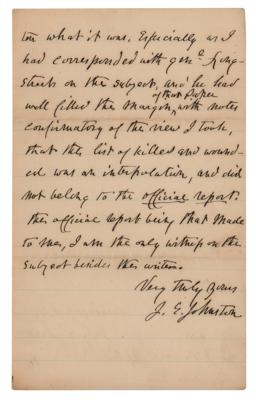 tow what it was. Especially as I
had corresponded with Genl. Long-
street on the subject, and he had
well filled the margin of that paper with notes
confirmatory of the view I took,
that this list of killed and wound-
ed was an interpolation, and did
not belong to the official report.
this official report being that made
to me, I am the only witness on the
subject besides the writer.
Very truly Yours
J. E. Johnston